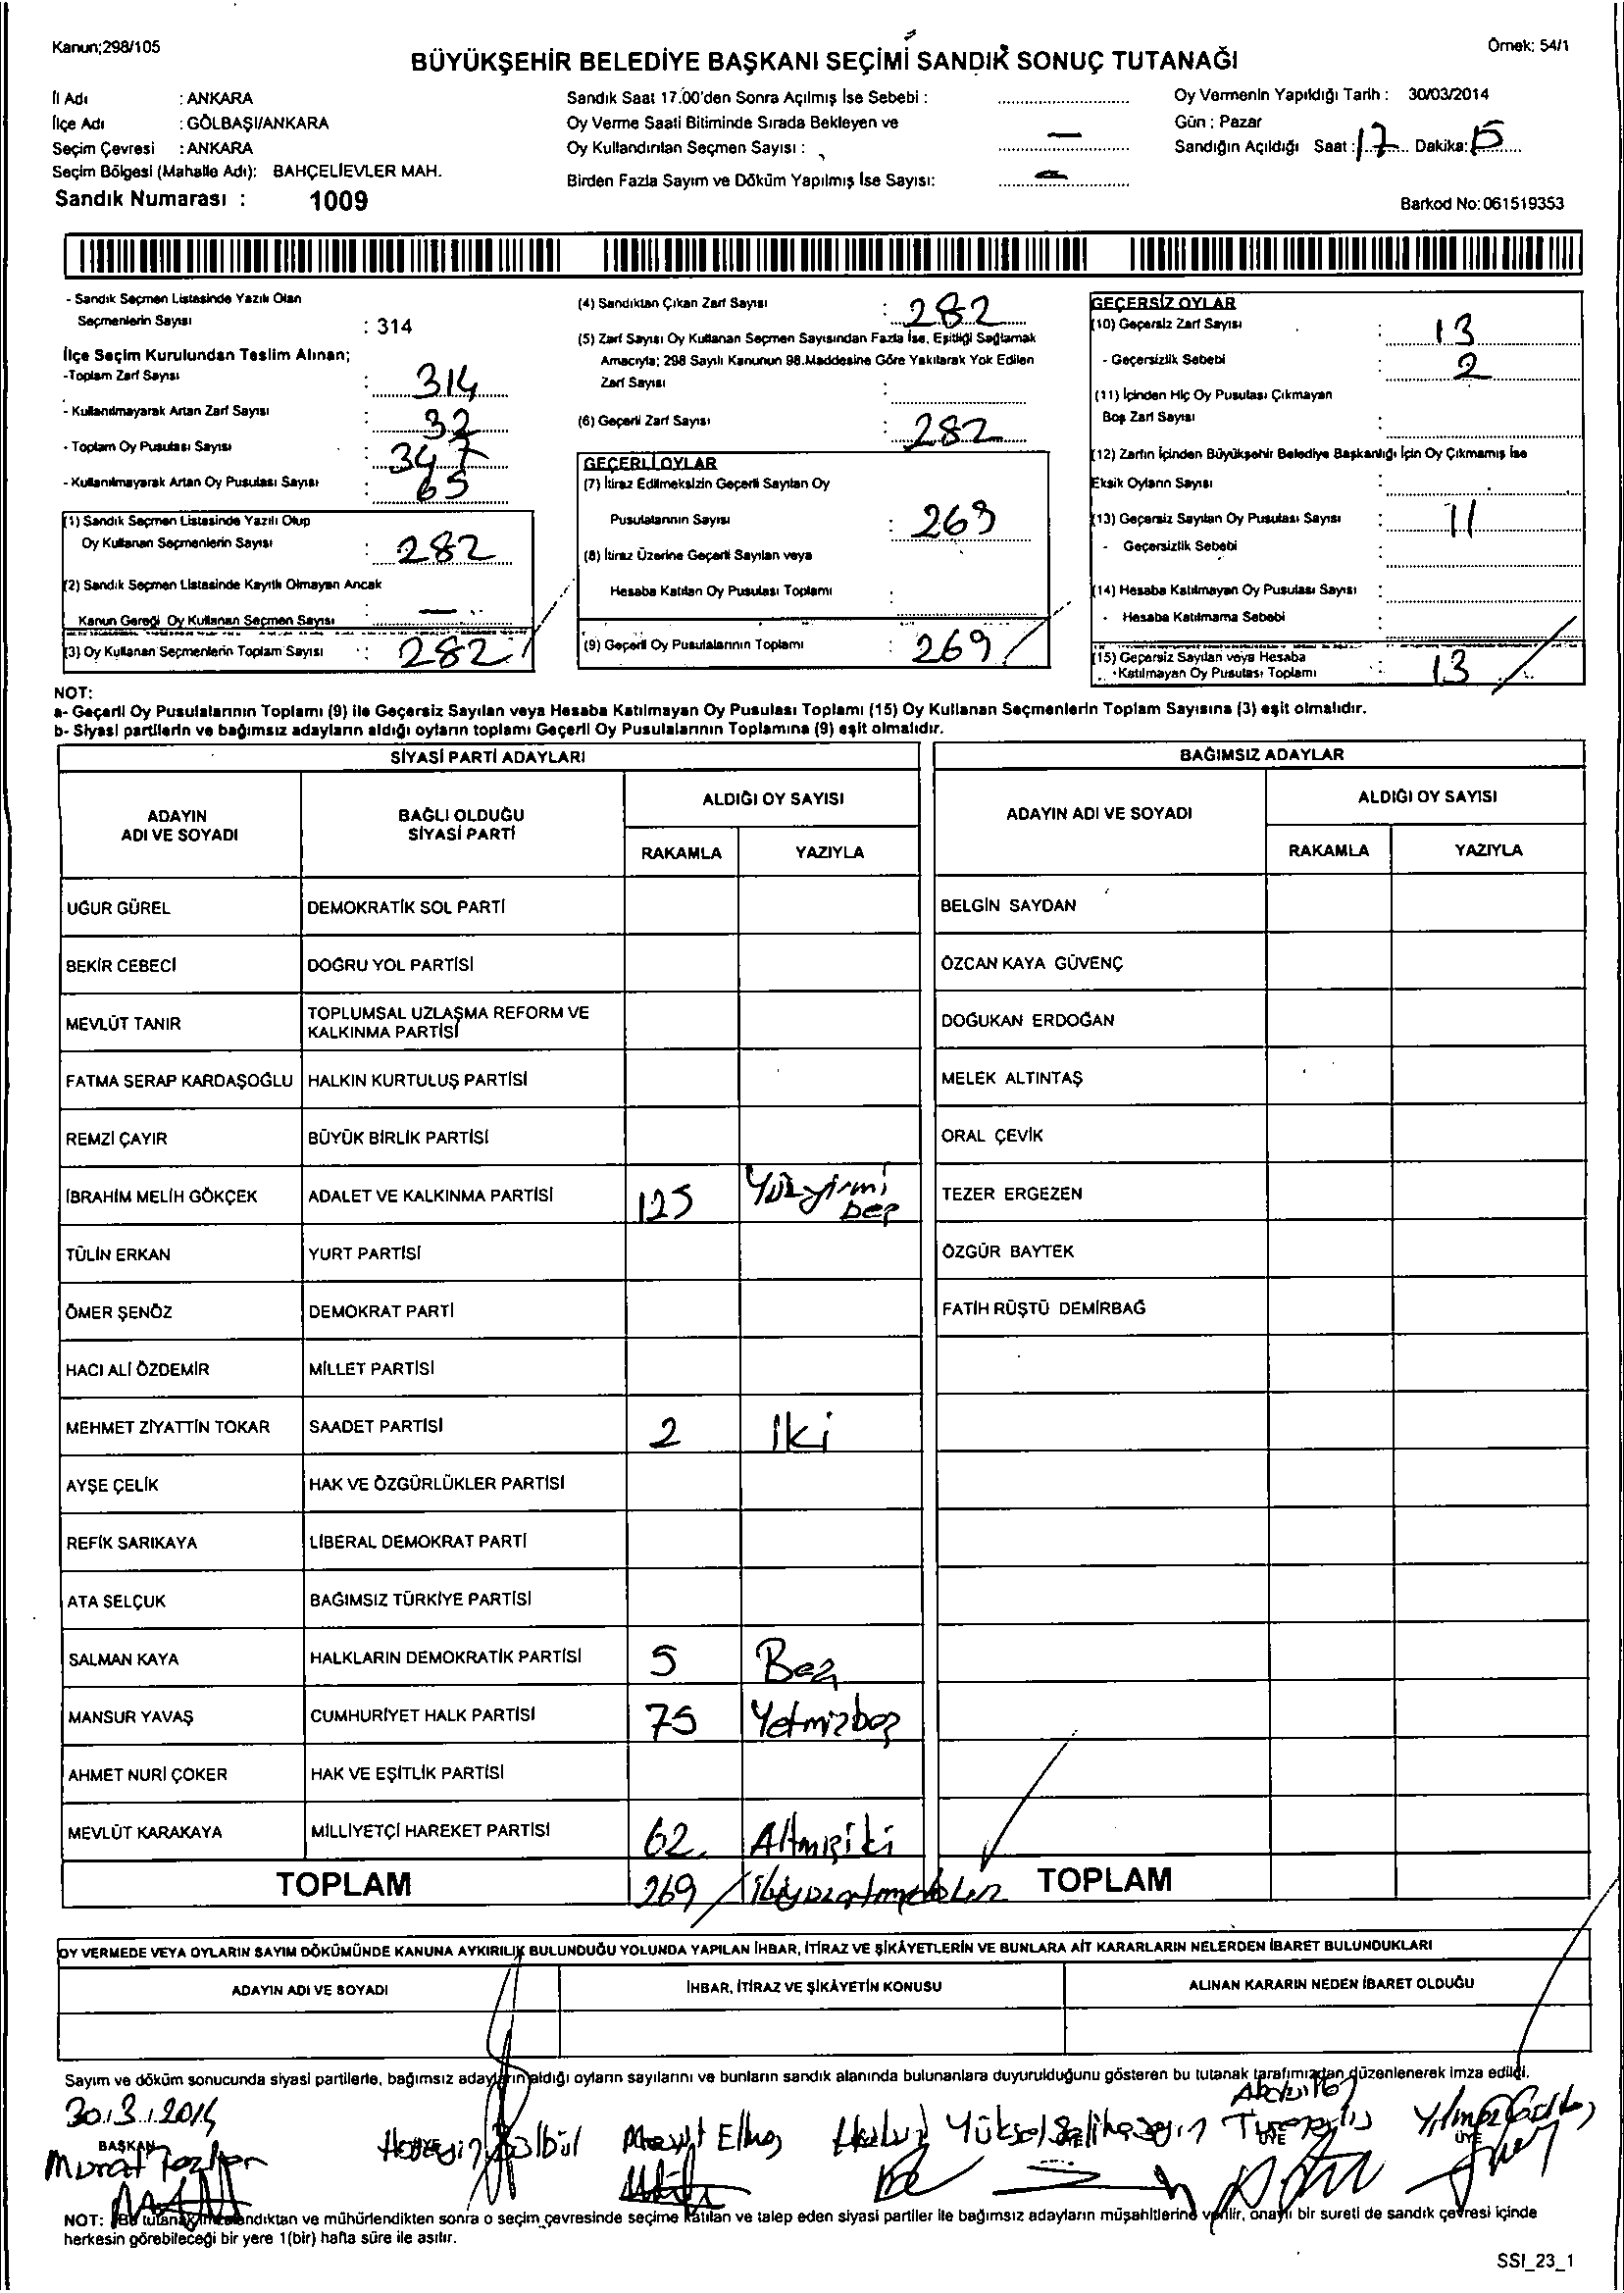 Kanun;298/105
Örnek: 54/1
BÜYÜKŞEHİR BELEDİYE BAŞKANI SEÇİMİ SANDIK SONUÇ TUTANAĞI
İl Adı : ANKARA
İlçe Adı : GÖLBAŞI/ANKARA
Seçim Çevresi : ANKARA
Seçim Bölgesi (Mahalle Adı): BAHÇELİEVLER MAH.
Sandık Numarası : 1009
Sandık Saat 17.00'den Sonra Açılmış İse Sebebi :
Oy Verme Saati Bitiminde Sırada Bekleyen ve
Oy Kullandırılan Seçmen Sayısı : —
Birden Fazla Sayım ve Döküm Yapılmış İse Sayısı: —
Oy Vermenin Yapıldığı Tarih : 30/03/2014
Gün : Pazar
Sandığın Açıldığı Saat : 17 Dakika: 15
Barkod No: 061519353
- Sandık Seçmen Listesinde Yazılı Olan
Seçmenlerin Sayısı : 314
İlçe Seçim Kurulundan Teslim Alınan;
-Toplam Zarf Sayısı : 314
- Kullanılmayarak Artan Zarf Sayısı : 32
- Toplam Oy Pusulası Sayısı : 347
- Kullanılmayarak Artan Oy Pusulası Sayısı : 65
(1) Sandık Seçmen Listesinde Yazılı Olup
Oy Kullanan Seçmenlerin Sayısı : 282
(2) Sandık Seçmen Listesinde Kayıtlı Olmayan Ancak
Kanun Gereği Oy Kullanan Seçmen Sayısı : —
(3) Oy Kullanan Seçmenlerin Toplam Sayısı : 282
(4) Sandıktan Çıkan Zarf Sayısı : 282
(5) Zarf Sayısı Oy Kullanan Seçmen Sayısından Fazla İse, Eşitliği Sağlamak
Amacıyla; 298 Sayılı Kanunun 98.Maddesine Göre Yakılarak Yok Edilen
Zarf Sayısı :
(6) Geçerli Zarf Sayısı : 282
GEÇERLİ OYLAR
(7) İtiraz Edilmeksizin Geçerli Sayılan Oy
Pusulalarının Sayısı : 269
(8) İtiraz Üzerine Geçerli Sayılan veya
Hesaba Katılan Oy Pusulası Toplamı :
(9) Geçerli Oy Pusulalarının Toplamı : 269
GEÇERSİZ OYLAR
(10) Geçersiz Zarf Sayısı : 13
- Geçersizlik Sebebi : 2
(11) İçinden Hiç Oy Pusulası Çıkmayan
Boş Zarf Sayısı :
(12) Zarfın İçinden Büyükşehir Belediye Başkanlığı İçin Oy Çıkmamış İse
Eksik Oyların Sayısı :
(13) Geçersiz Sayılan Oy Pusulası Sayısı : 11
- Geçersizlik Sebebi
(14) Hesaba Katılmayan Oy Pusulası Sayısı :
- Hesaba Katılmama Sebebi
(15) Geçersiz Sayılan veya Hesaba
Katılmayan Oy Pusulası Toplamı : 13
NOT:
a- Geçerli Oy Pusulalarının Toplamı (9) ile Geçersiz Sayılan veya Hesaba Katılmayan Oy Pusulası Toplamı (15) Oy Kullanan Seçmenlerin Toplam Sayısına (3) eşit olmalıdır.
b- Siyasi partilerin ve bağımsız adayların aldığı oyların toplamı Geçerli Oy Pusulalarının Toplamına (9) eşit olmalıdır.
SİYASİ PARTİ ADAYLARI
BAĞIMSIZ ADAYLAR
ADAYIN ADI VE SOYADI
BAĞLI OLDUĞU SİYASİ PARTİ
ALDIĞI OY SAYISI
RAKAMLA YAZIYLA
ADAYIN ADI VE SOYADI
ALDIĞI OY SAYISI
RAKAMLA YAZIYLA
UĞUR GÜREL DEMOKRATİK SOL PARTİ BELGİN SAYDAN
BEKİR CEBECİ DOĞRU YOL PARTİSİ ÖZCAN KAYA GÜVENÇ
MEVLÜT TANIR TOPLUMSAL UZLAŞMA REFORM VE KALKINMA PARTİSİ DOĞUKAN ERDOĞAN
FATMA SERAP KARDAŞOĞLU HALKIN KURTULUŞ PARTİSİ MELEK ALTINTAŞ
REMZİ ÇAYIR BÜYÜK BİRLİK PARTİSİ ORAL ÇEVİK
İBRAHİM MELİH GÖKÇEK ADALET VE KALKINMA PARTİSİ 125 Yüzyirmi beş TEZER ERGEZEN
TÜLİN ERKAN YURT PARTİSİ ÖZGÜR BAYTEK
ÖMER ŞENÖZ DEMOKRAT PARTİ FATİH RÜŞTÜ DEMİRBAĞ
HACI ALİ ÖZDEMİR MİLLET PARTİSİ
MEHMET ZİYATTİN TOKAR SAADET PARTİSİ 2 Iki
AYŞE ÇELİK HAK VE ÖZGÜRLÜKLER PARTİSİ
REFİK SARIKAYA LİBERAL DEMOKRAT PARTİ
ATA SELÇUK BAĞIMSIZ TÜRKİYE PARTİSİ
SALMAN KAYA HALKLARIN DEMOKRATİK PARTİSİ 5 Beş
MANSUR YAVAŞ CUMHURİYET HALK PARTİSİ 75 Yetmizbeş
AHMET NURİ ÇOKER HAK VE EŞİTLİK PARTİSİ
MEVLÜT KARAKAYA MİLLİYETÇİ HAREKET PARTİSİ 62 Altmışiki
TOPLAM 269 TOPLAM
OY VERMEDE VEYA OYLARIN SAYIM DÖKÜMÜNDE KANUNA AYKIRILIK BULUNDUĞU YOLUNDA YAPILAN İHBAR, İTİRAZ VE ŞİKÂYETLERİN VE BUNLARA AİT KARARLARIN NELERDEN İBARET BULUNDUKLARI
ADAYIN ADI VE SOYADI İHBAR, İTİRAZ VE ŞİKÂYETİN KONUSU ALINAN KARARIN NEDEN İBARET OLDUĞU
Sayım ve döküm sonucunda siyasi partilerle, bağımsız adayların aldığı oyların sayılarını ve bunların sandık alanında bulunanlara duyurulduğunu gösteren bu tutanak tarafımızdan düzenlenerek imza edildi.
30.3.2014
BAŞKAN ÜYE ÜYE
Murat Hüseyin Yüksel
NOT: Bu tutanak imzalandıktan ve mühürlendikten sonra o seçim çevresinde seçime katılan ve talep eden siyasi partiler ile bağımsız adayların müşahitlerine verilir, onaylı bir sureti de sandık çevresi içinde
herkesin görebileceği bir yere 1(bir) hafta süre ile asılır.
SSI_23_1